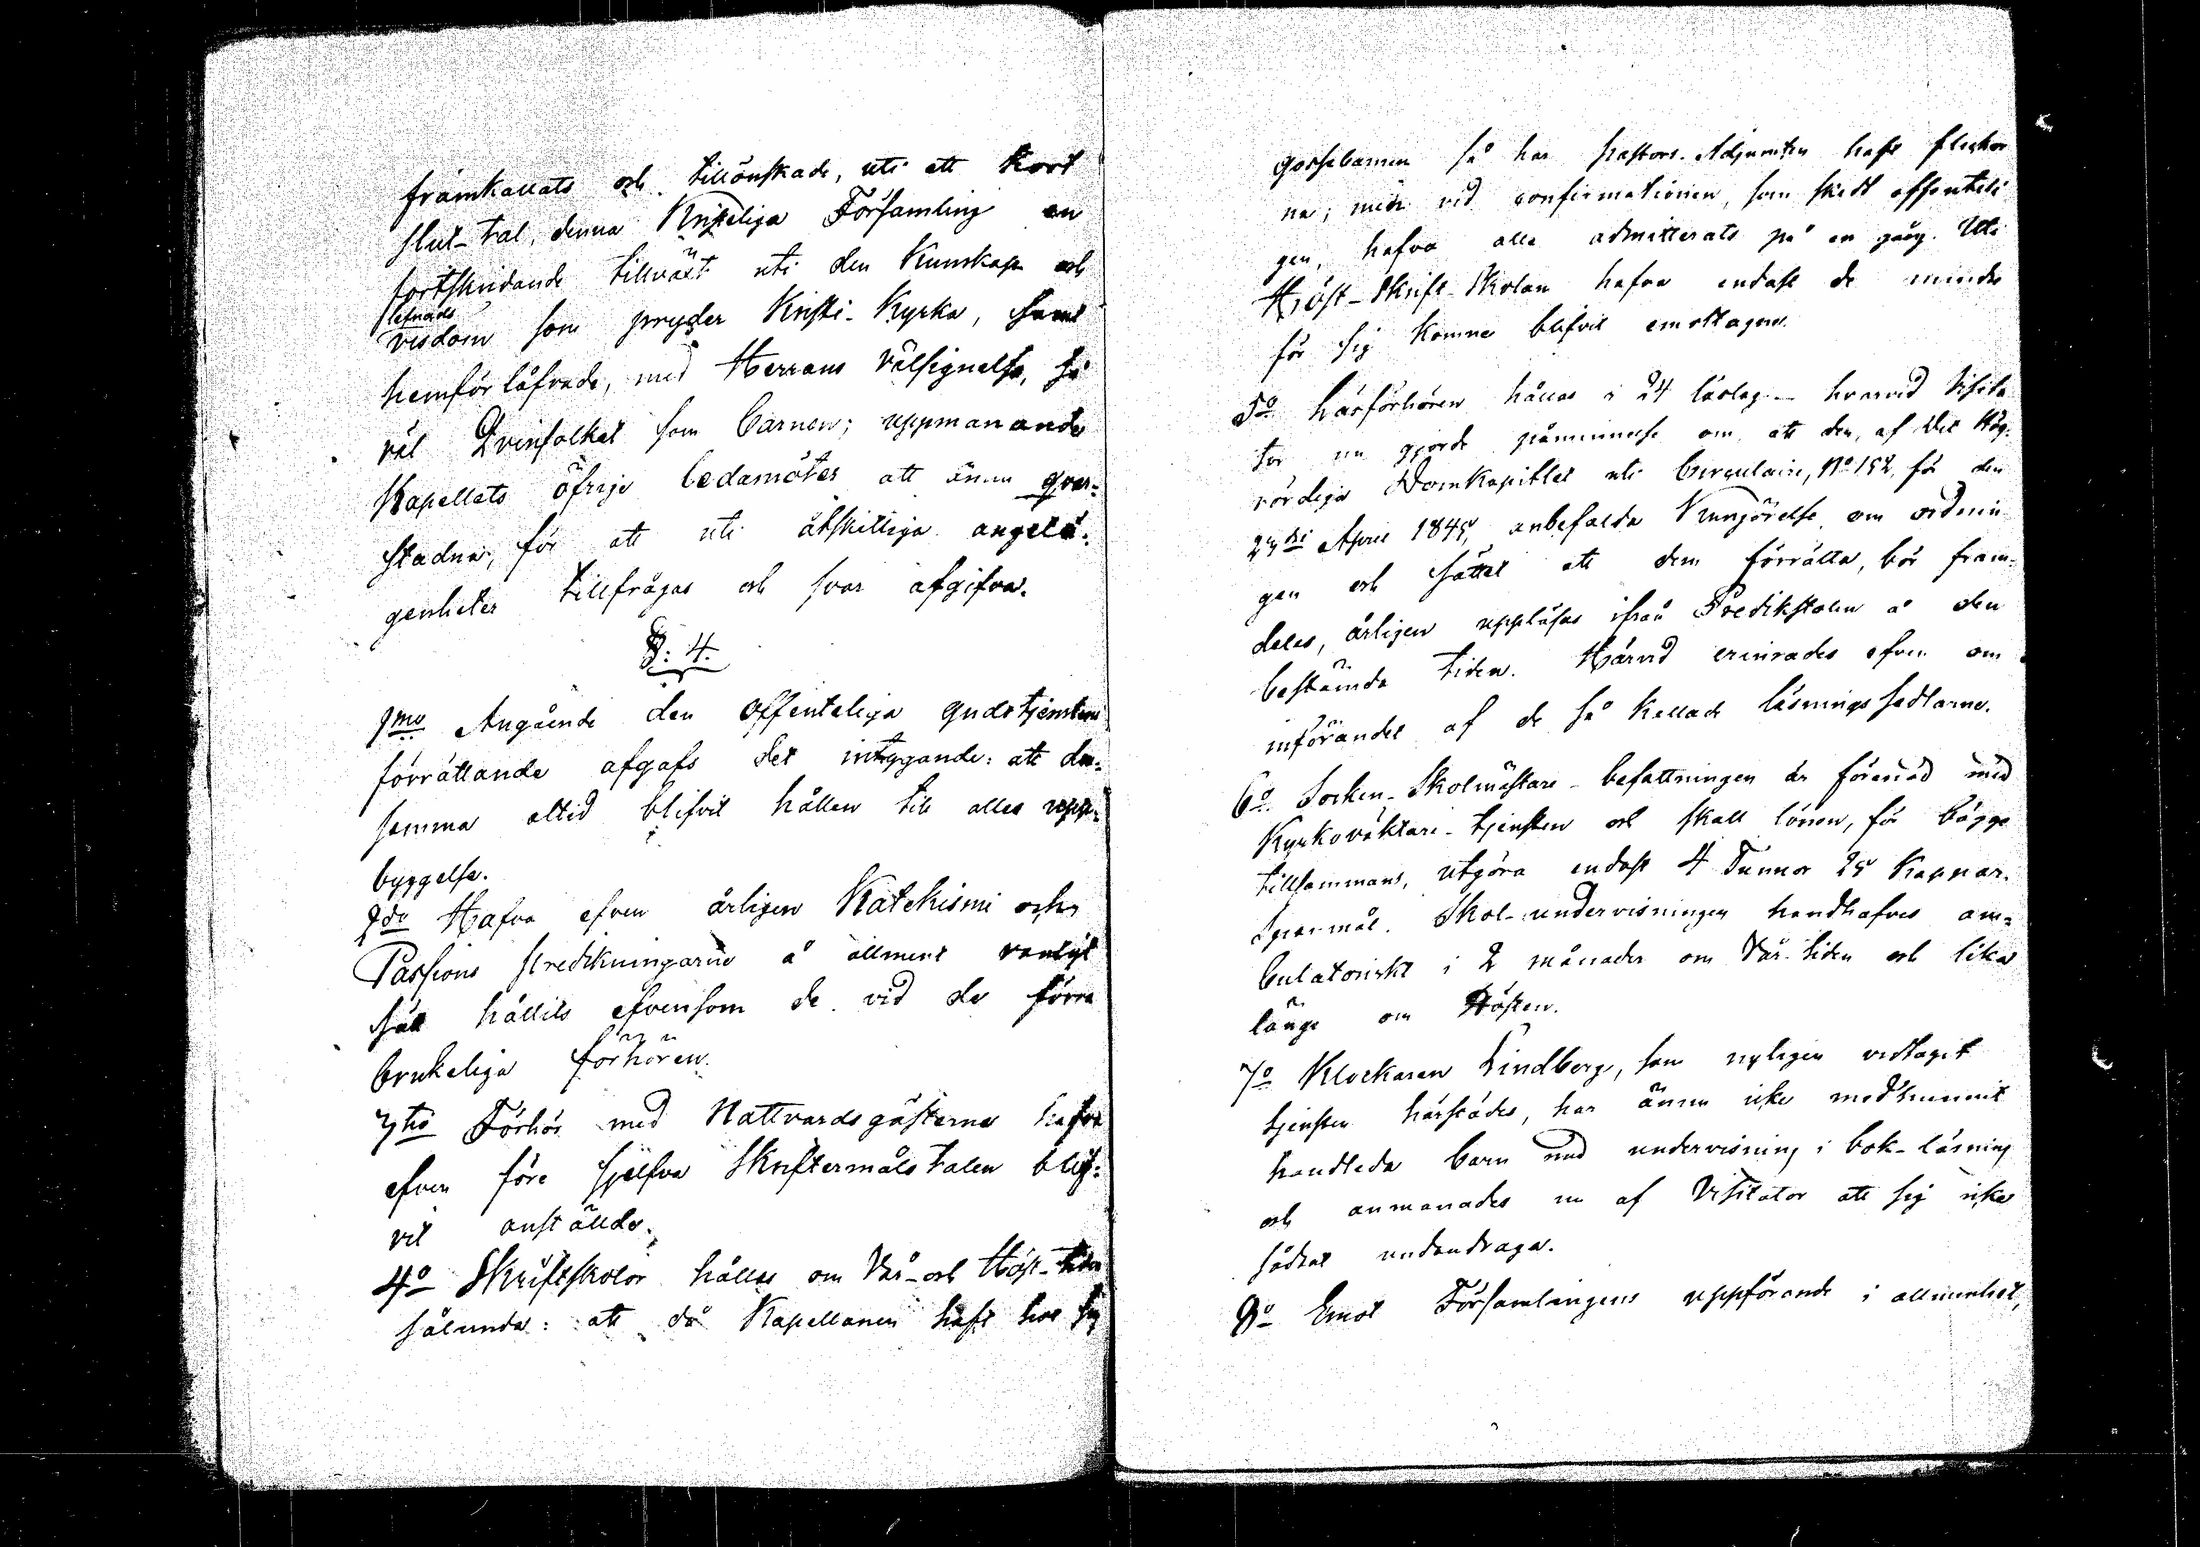 framkallats och tillönskade, uti ett kort
slut-tal, denna Kristeliga Församling en
fortskridande tillväxt uti den Kunskap och
lefnads
visdom som pryder Kristi-Kyrka, samt
hemförlåfvade, med Herrans Välsignelse, så
väl Qvinfolket som barnen; uppmanande
Kapellets öfrige ledamöter att ännu qvar-
stadna, för att uti åtskilliga angelä-
genheter tillfrågas och svar afgifva.
§: 4.
1mo Angående den offenteliga gudstjenstens
förrättande afgafs det intygande: att den-
samma altid blifvit hållen till alles upp-
byggelse.
2do Hafva efven årligen Katekismi och
Passions predikningarne å allment vanligt
sätt hållits efvensom de vid de förra
brukeliga förhören.
3tio Förhör med Nattvardsgästerne hafva
efven före sjelfva Skriftermåls talen blif-
vit anställde.
4o Skriftskolor hållas om Vår- och Höst-tiden
sålunda: att då Kapellanen haft hos sig
gossebarnen så har Pastors-Adjuncten haft flickor
na; men vid confirmationen, som skedt offenteli
gen, hafva alla admitterats på en gång. Uti
Höst-Skrift-Skolan hafva endast de mindre
för sig komne blifvit emottagne.
5o Läsförhören hållas i 24 läslag - hvarvid Visita
tor nu gjorde påminnelse om att den, af Det Hög-
vördiga Domkapitlet uti Circulaire, No 152, för den
24de April 1845, anbefalda Kungörelse om ordnin
gen och sättet att dem förrätta, bör fram-
deles, årligen uppläsas ifrån Predikstolen å den
bestämda tiden. Härvid erinrades efven om
införandet af de så kallade läsningssedlarne.
6o Socken-Skolmästare-befattningen är förenad med
Kyrkoväktare-tjensten och skall lönen, för bägge
tillsammans, utgöra endast 4 Tunnor 25 Kappar
Spanmål. Skol-undervisningen handhafves am-
bulatoriskt i 2 månader om Vår-tiden och lika
länge om Hösten.
7o Klockaren Lindberg, som nyligen vidtagit
tjensten härstädes, har ännu icke medhunnit
handleda barn med undervisning i bok-läsning
och anmanades nu af Visitator att sig icke
sådant undandraga.
8o Emot Församlingens uppförande i allmänhet,